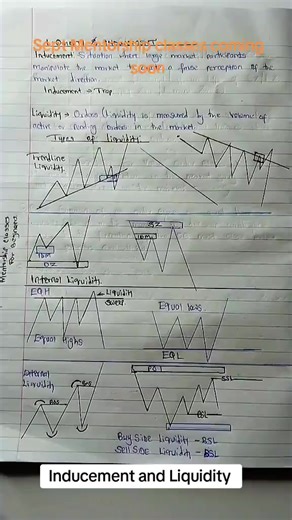 Sept Mentorship classes coming
soon
Inducement
Situation where large market participants
manipulate the market a false perception of the
market direction.
Inducement → Trap
Liquidity → Orders Liquidity is measured by the volume of
active or orders in the market.
Types of liquidity
Trendline
Liquidity
IDM
OZ
IDM
Mentorship classes
For
Internal Liquidity
EQH
Liquidity
Equal highs
Equal lows
EQL
External
Liquidity
BSL
Buy Side Liquidity - BSL
Sell Side Liquidity - BSL
Inducement and Liquidity